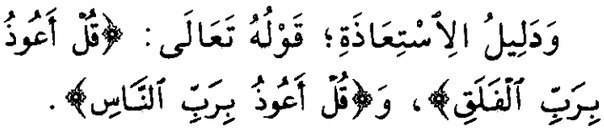 وَدَلِيلُ الِاسْتِعَاذَةِ؛ قَوْلُهُ تَعَالَى: ﴿قُلْ أَعُوذُ
بِرَبِّ ٱلْفَلَقِ﴾، وَ﴿قُلْ أَعُوذُ بِرَبِّ ٱلنَّاسِ﴾.